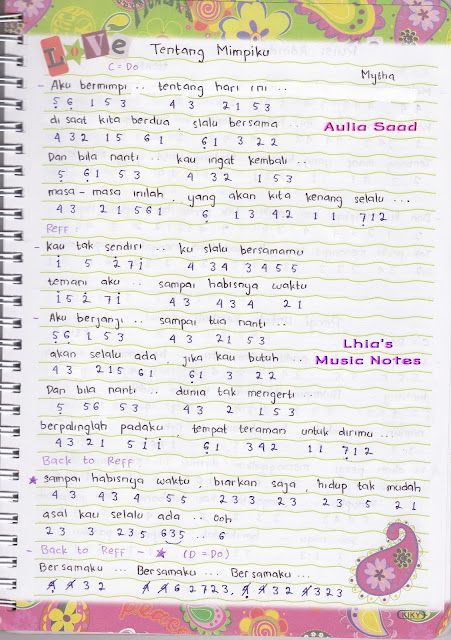 LOVE
Tentang Mimpiku
C = Do
Mytha
- Aku bermimpi .. tentang hari ini ..
5 6 1 5 3 4 3 2 1 5 3
di saat kita berdua, slalu bersama ..
Aulia Saad
4 3 2 1 5 6 1 6 1 3 2 2
Dan bila nanti .. kau ingat kembali ..
5 6 1 5 3 4 3 2 1 5 3
masa-masa inilah, yang akan kita kenang selalu ...
4 3 2 1 5 6 1 6 1 3 4 2 1 1 7 1 2
Reff :
- kau tak sendiri .. ku slalu bersamamu
i 5 2 7 i 4 3 4 3 4 5 5
temani aku .. sampai habisnya waktu
i 5 2 7 i 4 3 4 3 4 2 1
- Aku berjanji .. sampai tua nanti ..
5 6 1 5 3 4 3 2 1 5 3
Lhia's
akan selalu ada, jika kau butuh ..
Music Notes
4 3 2 1 5 6 1 6 1 3 2 2
Dan bila nanti .. dunia tak mengerti ..
5 5 6 5 3 4 3 2 1 5 3
berpalinglah padaku, tempat teraman untuk dirimu ...
4 3 2 1 5 i i 6 1 3 4 2 1 1 7 1 2
Back to Reff :
★ sampai habisnya waktu, biarkan saja, hidup tak mudah
4 3 4 3 4 5 5 2 3 3 2 3 2 3 5 2 1
asal kau selalu ada .. Ooh
2 3 3 2 3 5 6 3 5 .. 6
- Back to Reff - ★ (D = Do)
Bersamaku ... Bersamaku ... Bersamaku ...
4 4 3 2 4 4 6 2 7 2 3, 4 4 3 2 4 3 2 3
KIKY